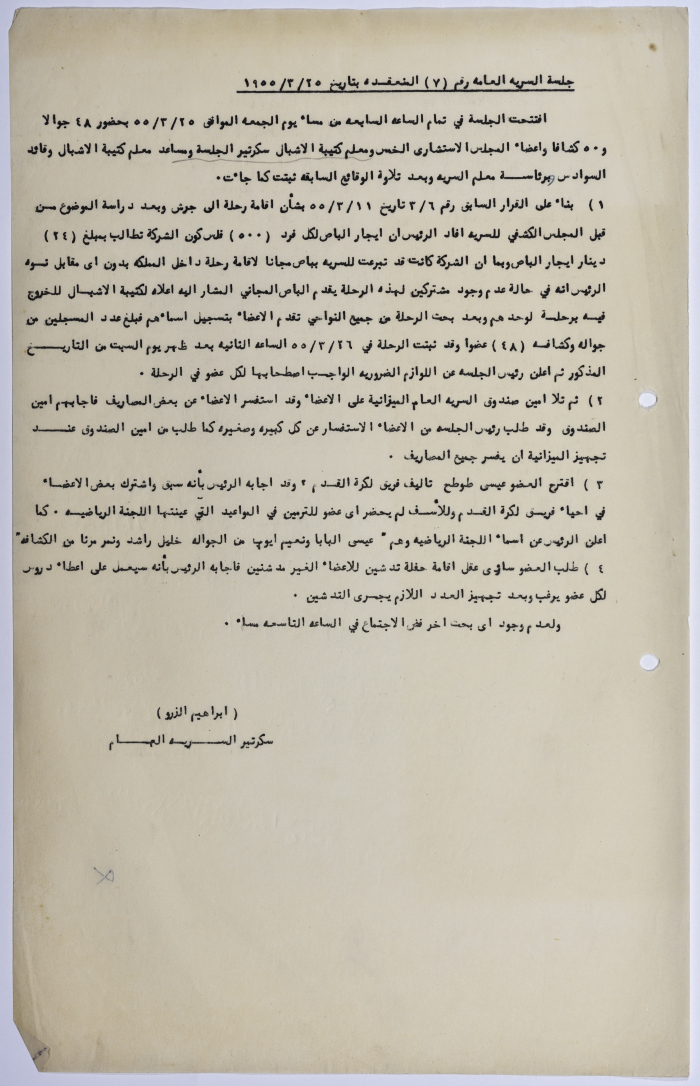 جلسة السريه العامه رقم (٧) المنعقده بتاريخ ١٩٥٥/٣/٢٥
افتتحت الجلسة في تمام الساعه السابعه من مساء يوم الجمعه الموافق ٥٥/٣/٢٥ بحضور ٤٨ جوالا
و٥٠ كشافا واعضاء المجلس الاستشاري الخمس ومعلم كتيبة الاشبال سكرتير الجلسة ومساعد معلم كتيبة الاشبال وقائد
السوادس وبرئاسة معلم السريه وبعد تلاوة الوقائع السابقه ثبتت كما جاءت.
١ ) بناء على القرار السابق رقم ٣/٦ تاريخ ٥٥/٣/١١ بشأن اقامة رحلة الى جرش وبعد دراسة الموضوع من
قبل المجلس الكشفي للسريه افاد الرئيس ان ايجار الباص لكل فرد (٥٠٠) فلس كون الشركة تطالب بمبلغ (٢٤)
دينار ايجار الباص وبما ان الشركة كانت قد تبرعت للسريه بباص مجانا لاقامة رحلة داخل المملكه بدون اى مقابل نوه
الرئيس انه في حالة عدم وجود مشتركين لهذه الرحلة يقدم الباص المجاني المشار اليه اعلاه لكتيبة الاشبال للخروج
فيه برحلة لوحدهم وبعد بحث الرحلة من جميع النواحي تقدم الاعضاء بتسجيل اسماءهم فبلغ عدد المسجلين من
جواله وكشافه (٤٨) عضوا وقد ثبتت الرحلة في ٥٥/٣/٢٦ الساعه الثانيه بعد ظهر يوم السبت من التاريخ
المذكور ثم اعلن رئيس الجلسه عن اللوازم الضروريه الواجب اصطحابها لكل عضو في الرحلة .
٢ ) ثم تلا امين صندوق السريه العام الميزانية على الاعضاء وقد استفسر الاعضاء عن بعض المصاريف فاجابهم امين
الصندوق وقد طلب رئيس الجلسه من الاعضاء الاستفسار عن كل كبيره وصغيره كما طلب من امين الصندوق عند
تجهيز الميزانية ان يفسر جميع المصاريف .
٣ ) اقترح العضو عيسى طوطح تاليف فريق لكرة القدم ؟ وقد اجابه الرئيس بأنه سبق واشترك بعض الاعضاء
في احياء فريق لكرة القدم وللأسف لم يحضر اى عضو للتمرين في المواعيد التي عينتها اللجنة الرياضيه . كما
اعلن الرئيس عن اسماء اللجنة الرياضيه وهم " عيسى البابا ونعيم ايوب من الجواله خليل راشد ونمر مرتا من الكشافه "
٤ ) طلب العضو عقل اقامة حفلة تدشين للاعضاء الغير مدشنين فاجابه الرئيس بأنه سيعمل على اعطاء دروس
لكل عضو يرغب وبعد تجهيز العدد اللازم يجرى التدشين .
ولعدم وجود اى بحث اخر فض الاجتماع في الساعه التاسعه مساء .
( ابراهيم الزرو )
سكرتير السريه العام